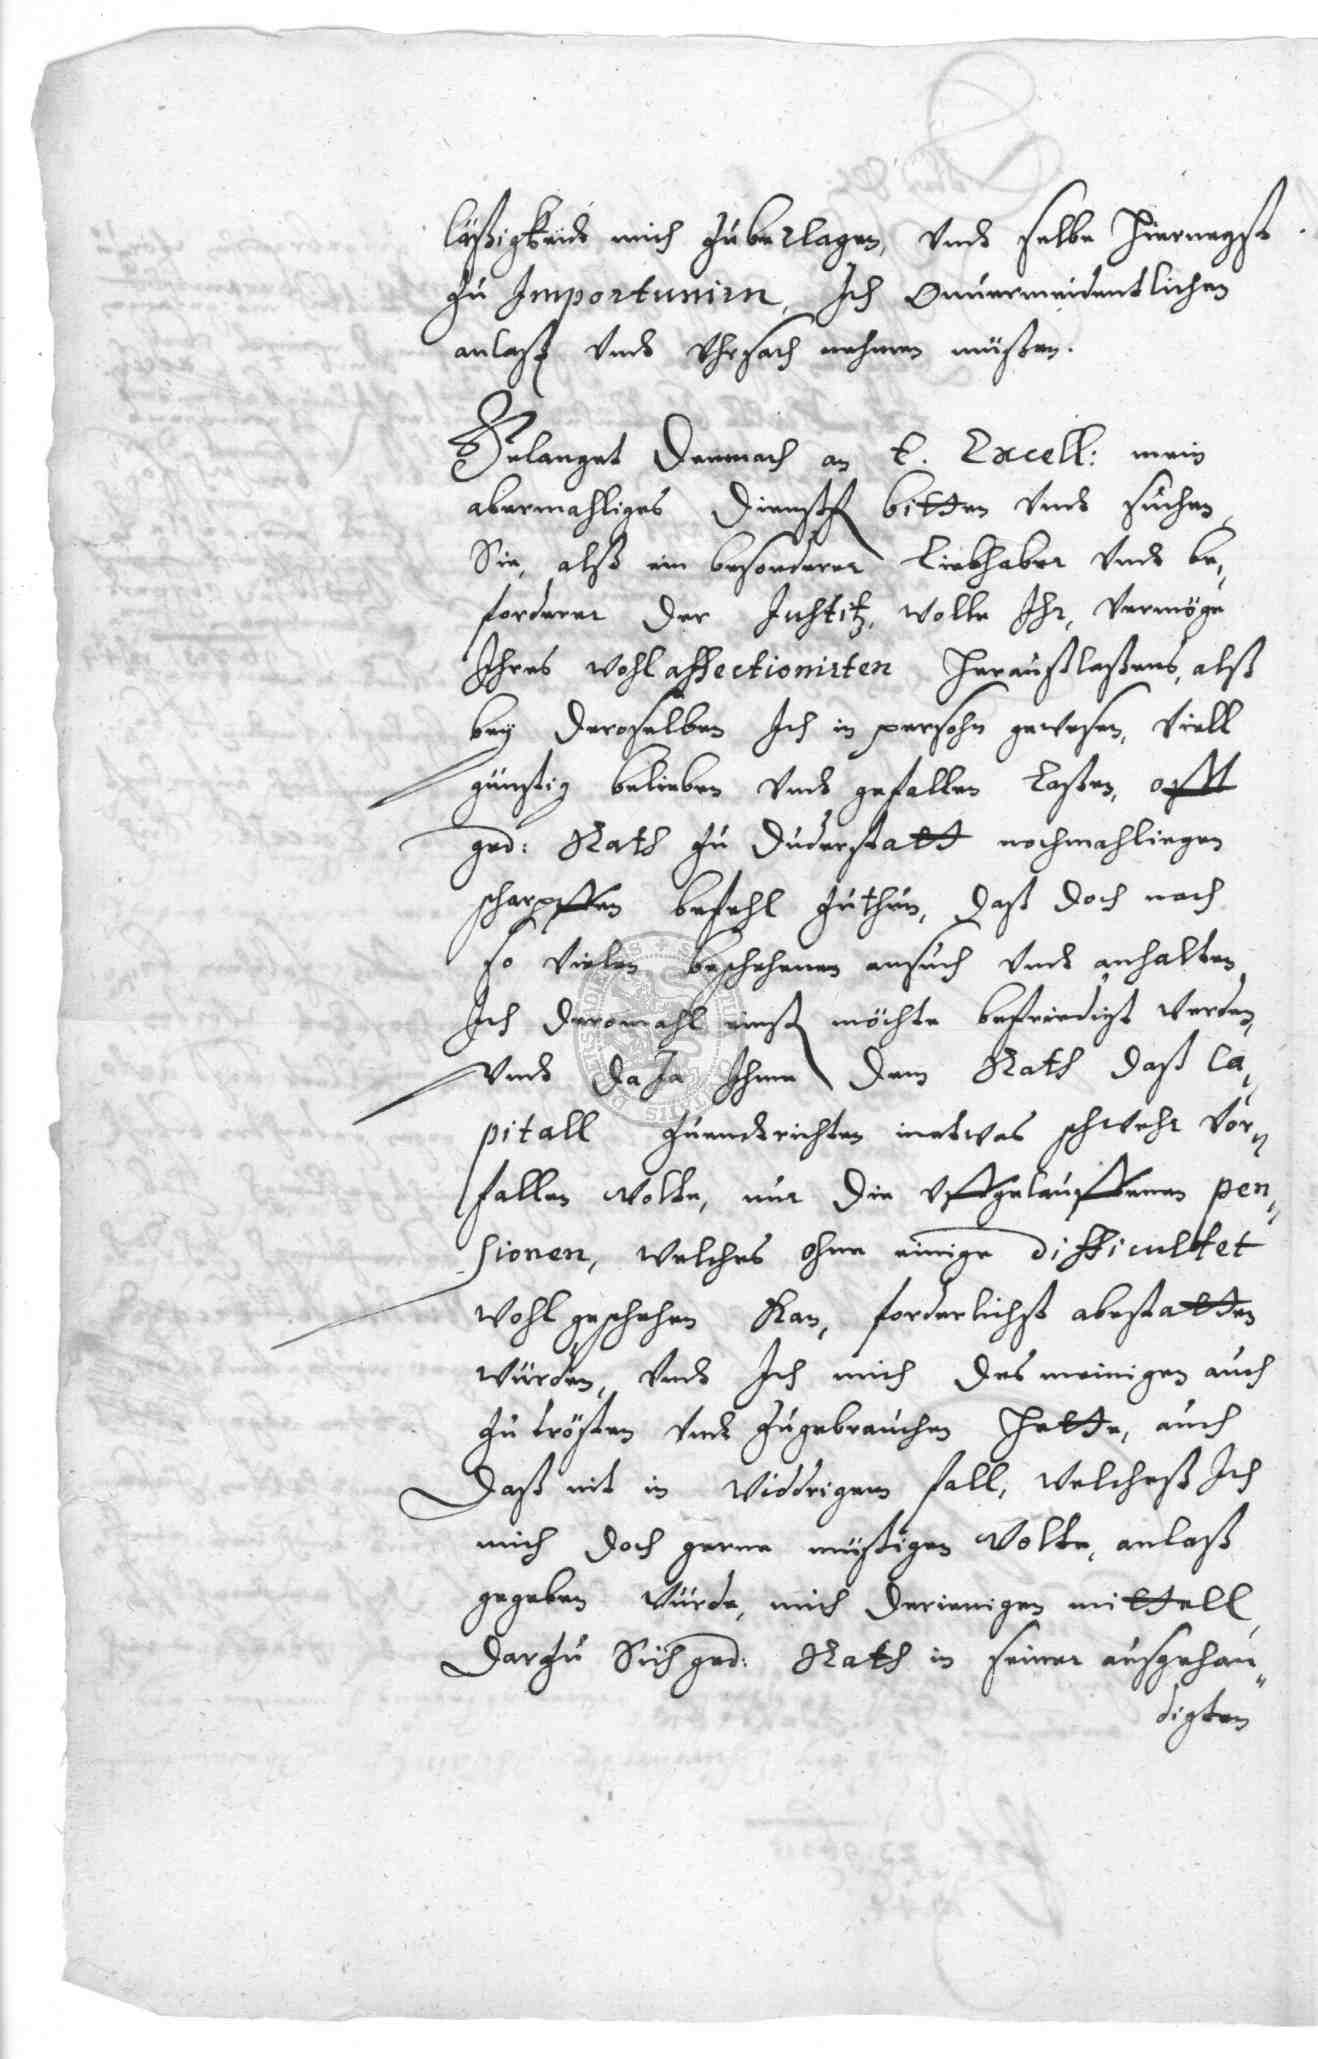 läßigkeidt mich zubeclagen, vndt selbe hiernegst
zu Importunirn, Ich Onuermeidentlichen
anlaß vndt vhrsach nehmen müßen.
Gelanget demnach an E. Excell: mein
abermahliges dienstl bitten vndt suchen,
Sie, alß ein besonderer Liebhaber vndt be,
forderer der Justitz, wolle Ihr, vermöge
Ihres wohl affectionirten heraußlaßens, alß
bey deroselben Ich in persohn gewesen, viell
günstig belieben vndt gefallen laßen, offt
ged: Rath zu Duderstatt nochmahligen
scharpffen befehl zuthun, daß doch nach
so vielen beschehenen ansuch vndt anhalten
Ich deromahl einß möchte befriedigt werden,
vndt da Ja Ihme dem Rath daß Ca,
pitall zuendtrichten inetwas schwehr vor„
fallen wolte, nur die vffgelauffenen pen„
sionen, welches ohne einige difficultet
wohl geschehen kan, forderlichst abestatten
würden, vndt Ich mich des meinigen auch
zu trösten vndt zugebrauchen hette, auch
daß nit in widdrigem fall, welcheß Ich
mich doch gerne müßigen wolte, anlaß
gegeben würde, mich derienigen mittell,
darzu Sich ged: Rath in seiner ausgehän„
digten